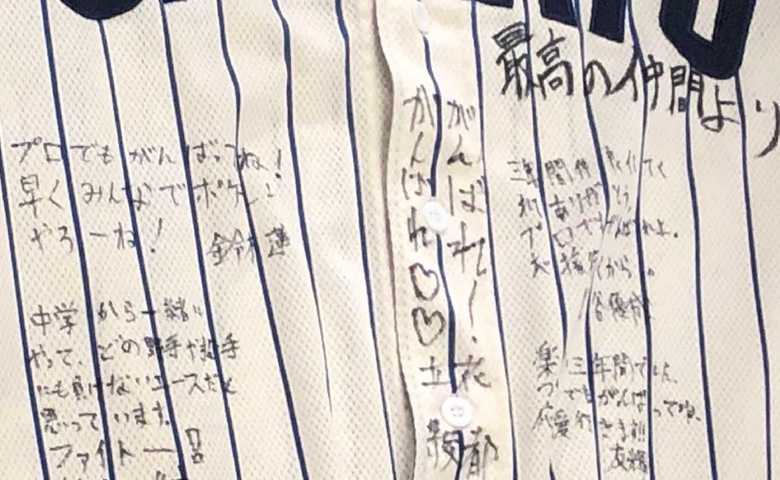 最高の仲間より
プロでもがんばってね!
早くみんなでポケモン
やろーね!
鈴木蓮
中学から一緒に
やって、どの野手や投手
にも負けないエースだと
思っています。
ファイトー!!
がんばれ!
がんばれ♡♡
立花
三年間仲良くしてく
れてありがとう
プロでもがんばれよ。
から。
谷優
三年間でした。
でもがんばってね。
応援行きます!!